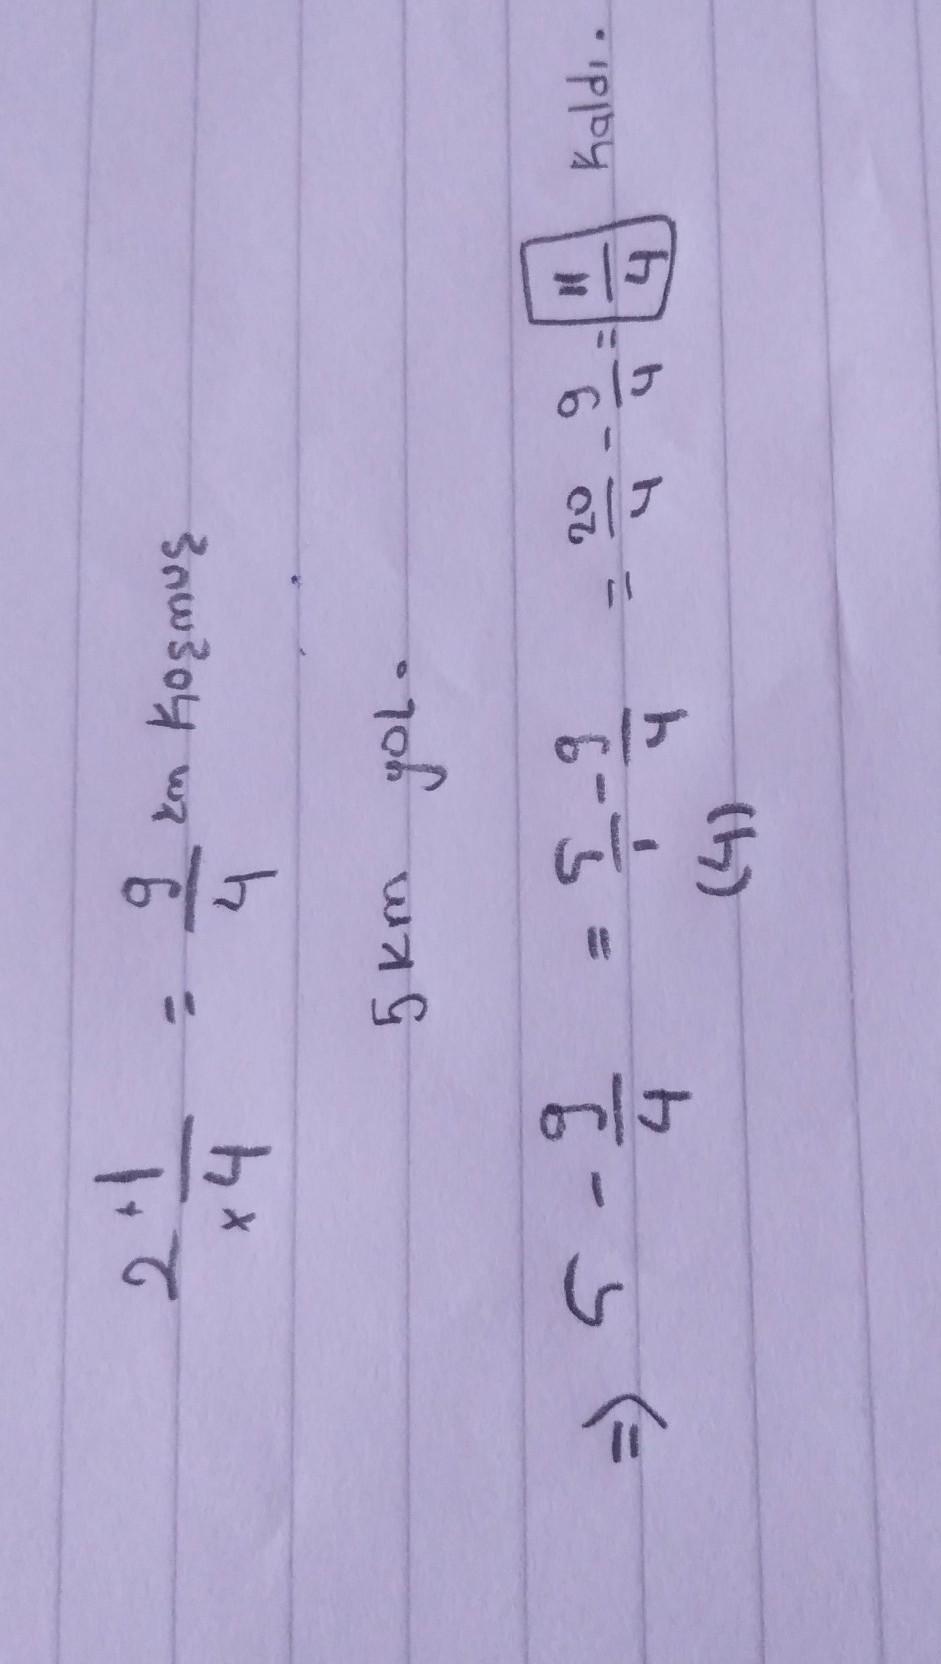 2 + 1/4 x = 9/4 km koşmuş
5 km yol.
⇒ 5 - 9/4 = 5/1 - 9/4 = 20/4 - 9/4 = 11/4 kaldı.
(4)